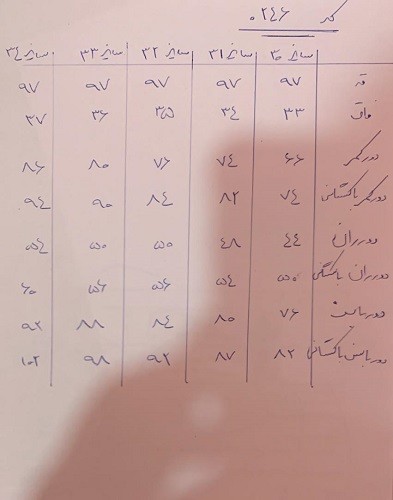 کد ۰۲۴۶
سایز ۳۰ سایز ۳۱ سایز ۳۲ سایز ۳۳ سایز ۳۴
قد ۹۷ ۹۷ ۹۷ ۹۷ ۹۷
فاق ۳۳ ۳۴ ۳۵ ۳۶ ۳۷
دور کمر ۶۶ ۷۴ ۷۶ ۸۰ ۸۶
دور کمر باکشسانی ۷۴ ۸۲ ۸۴ ۹۰ ۹۴
دور ران ۴۴ ۴۸ ۵۰ ۵۰ ۵۴
دور ران باکشسانی ۵۰ ۵۴ ۵۶ ۵۶ ۶۰
دور باسن ۷۶ ۸۰ ۸۴ ۸۸ ۹۲
دور باسن باکشسانی ۸۲ ۸۷ ۹۲ ۹۸ ۱۰۲